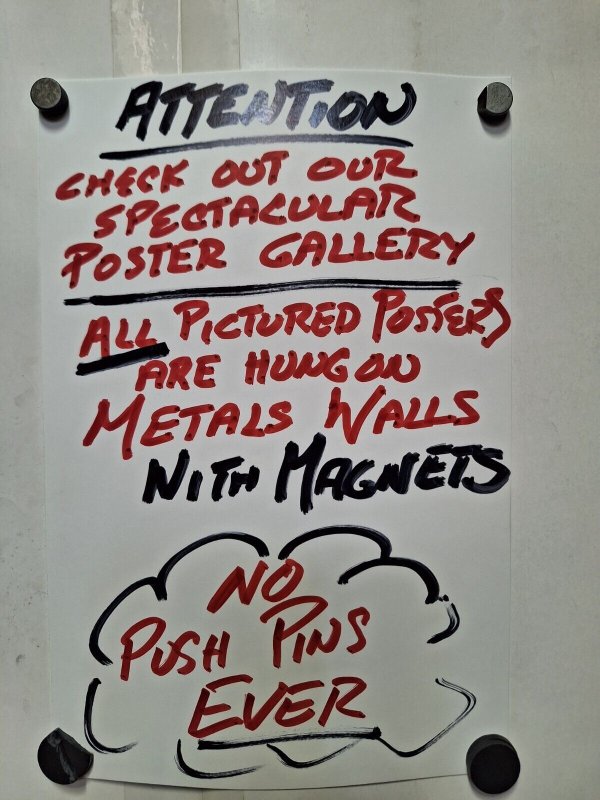 ATTENTION
CHECK OUT OUR
SPECTACULAR
POSTER GALLERY
ALL PICTURED POSTERS
ARE HUNG ON
METALS WALLS
WITH MAGNETS
NO
PUSH PINS
EVER